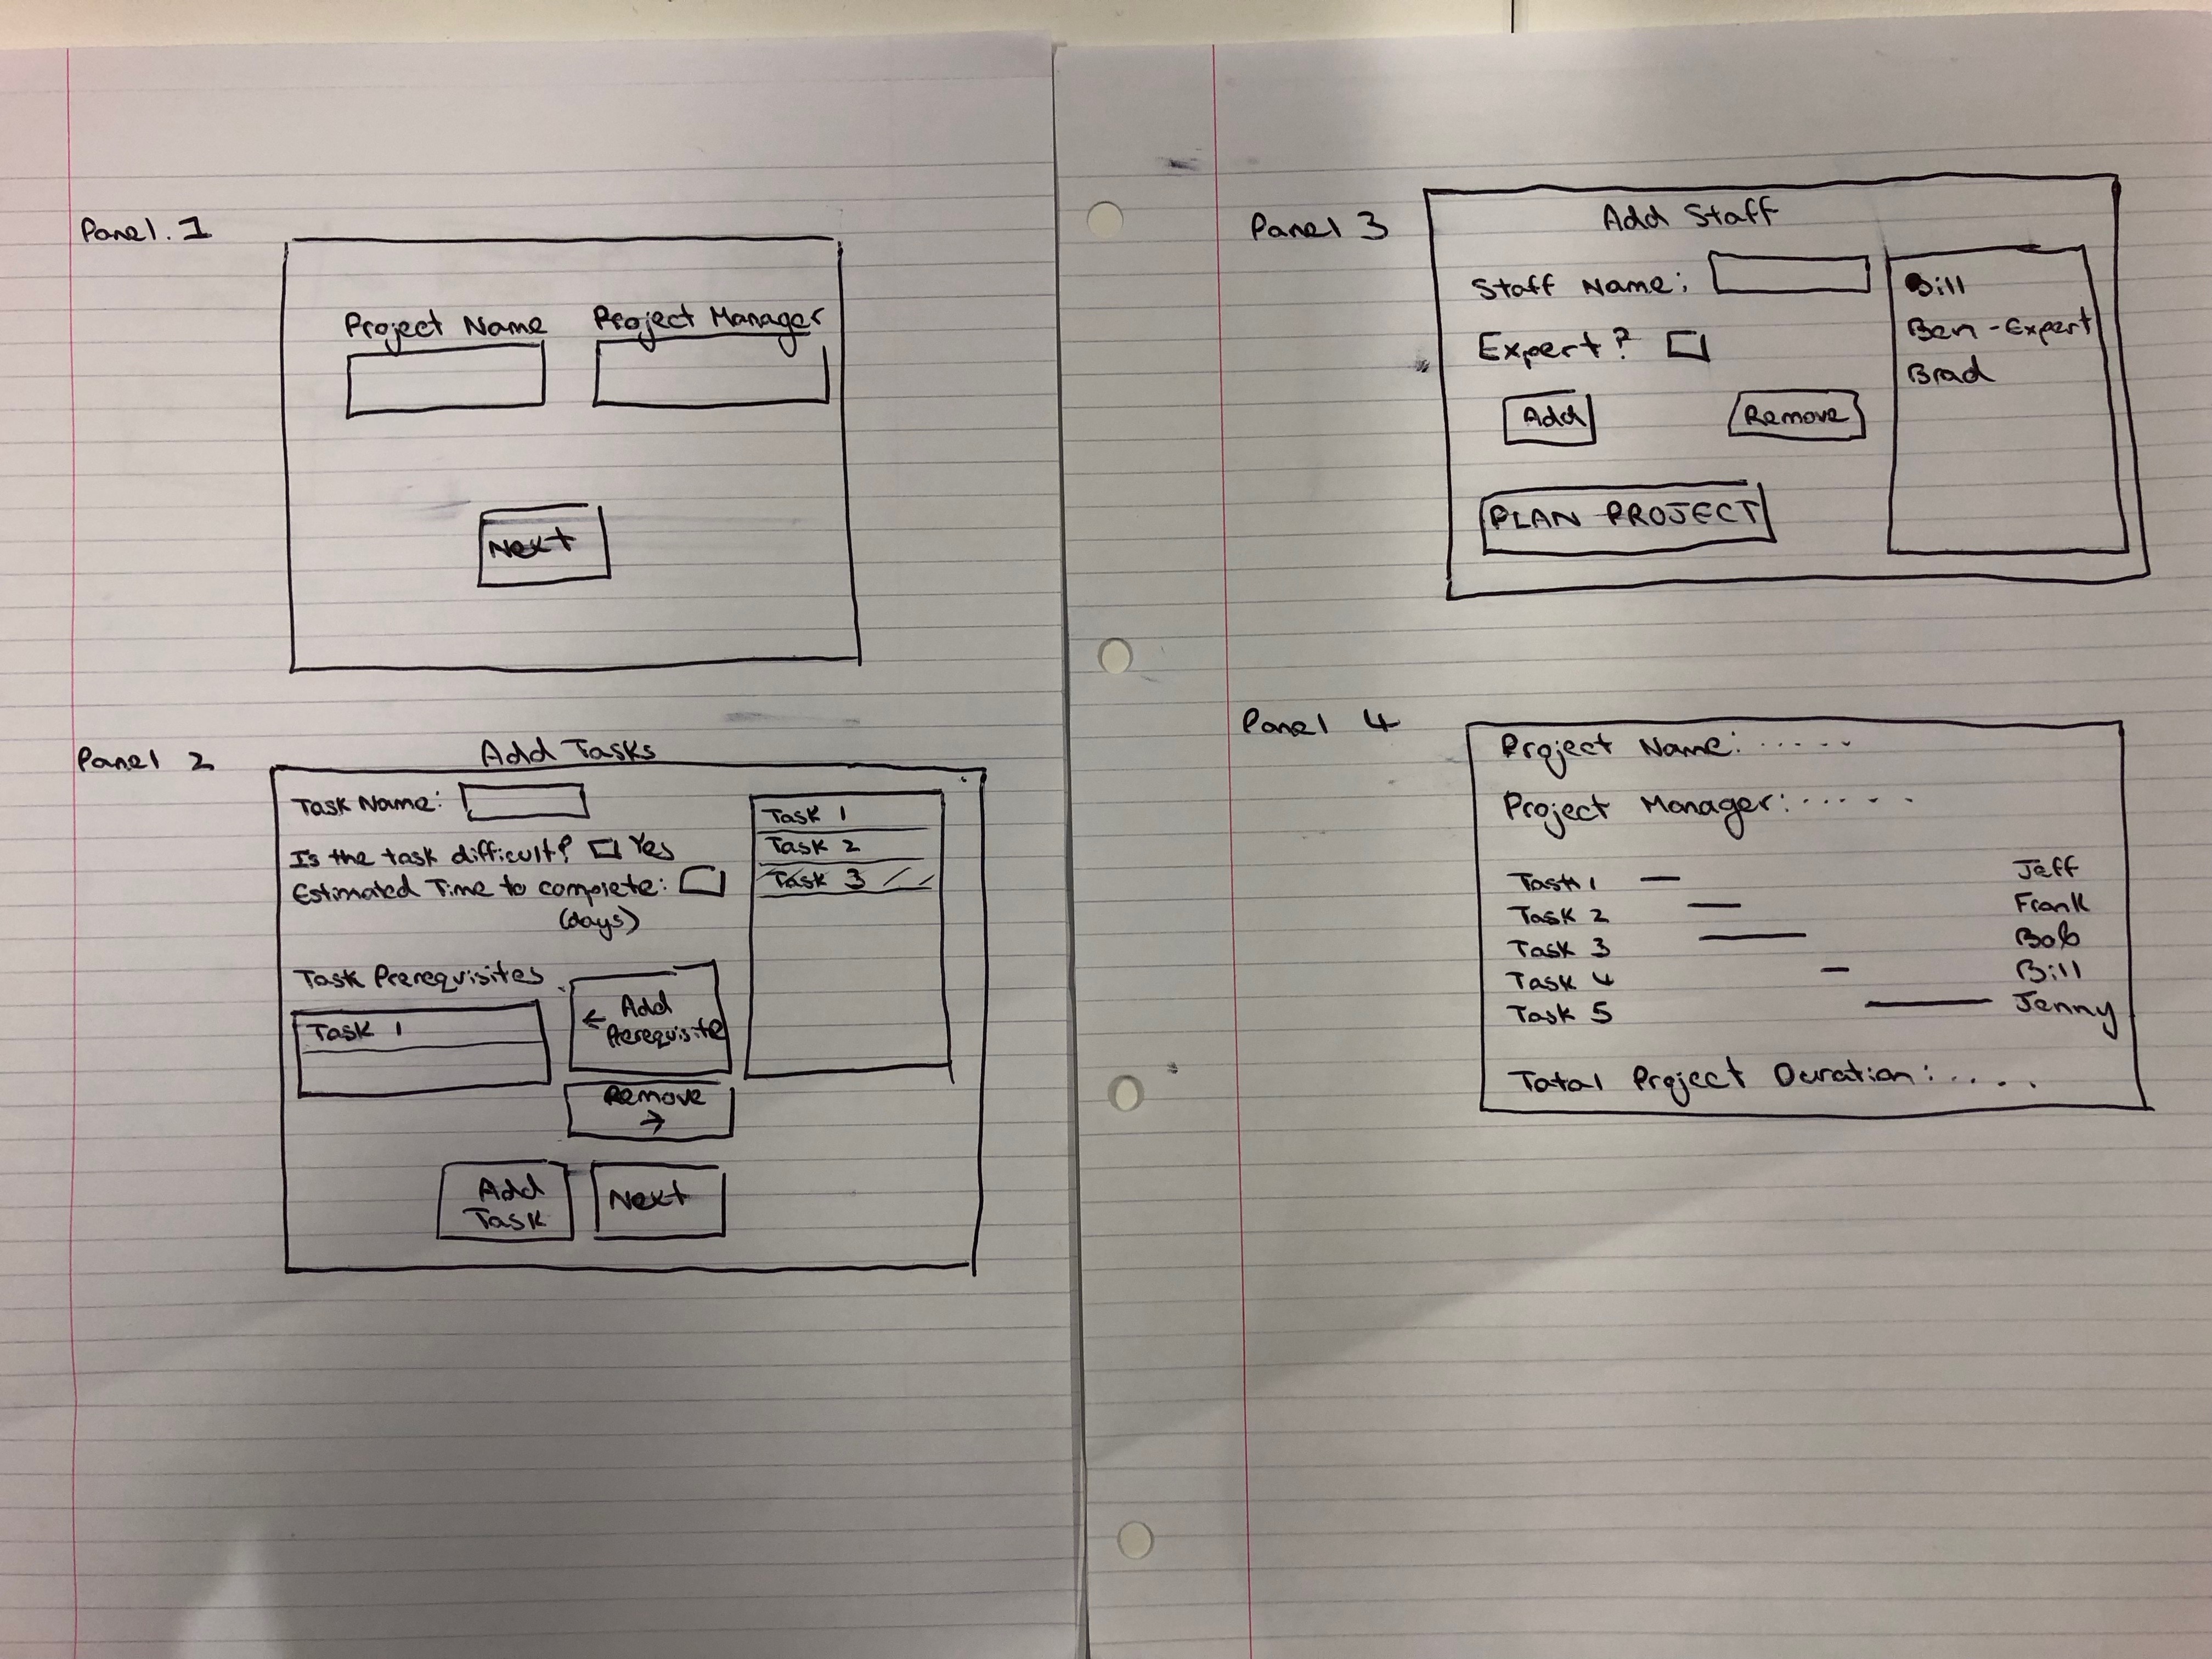 Panel. 1
Project Name Project Manager
Next
Panel 2
Add Tasks
Task Name:
Is the task difficult? Yes
Estimated Time to complete:
(days)
Task Prerequisites
Task 1
← Add
Prerequisite
Remove
→
Add
Task
Next
Task 1
Task 2
Task 3
Panel 3
Add Staff
Staff Name:
Expert?
Add Remove
PLAN PROJECT
Bill
Ben - Expert
Brad
Panel 4
Project Name: .....
Project Manager: .....
Task 1 Jeff
Task 2 Frank
Task 3 Bob
Task 4 Bill
Task 5 Jenny
Total Project Duration: ....